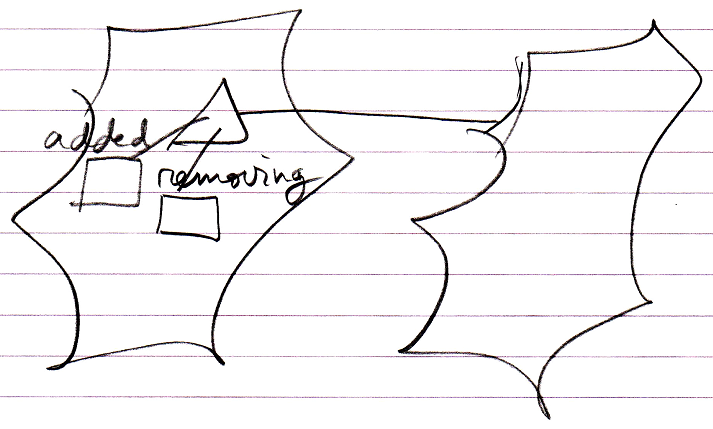 added
removing